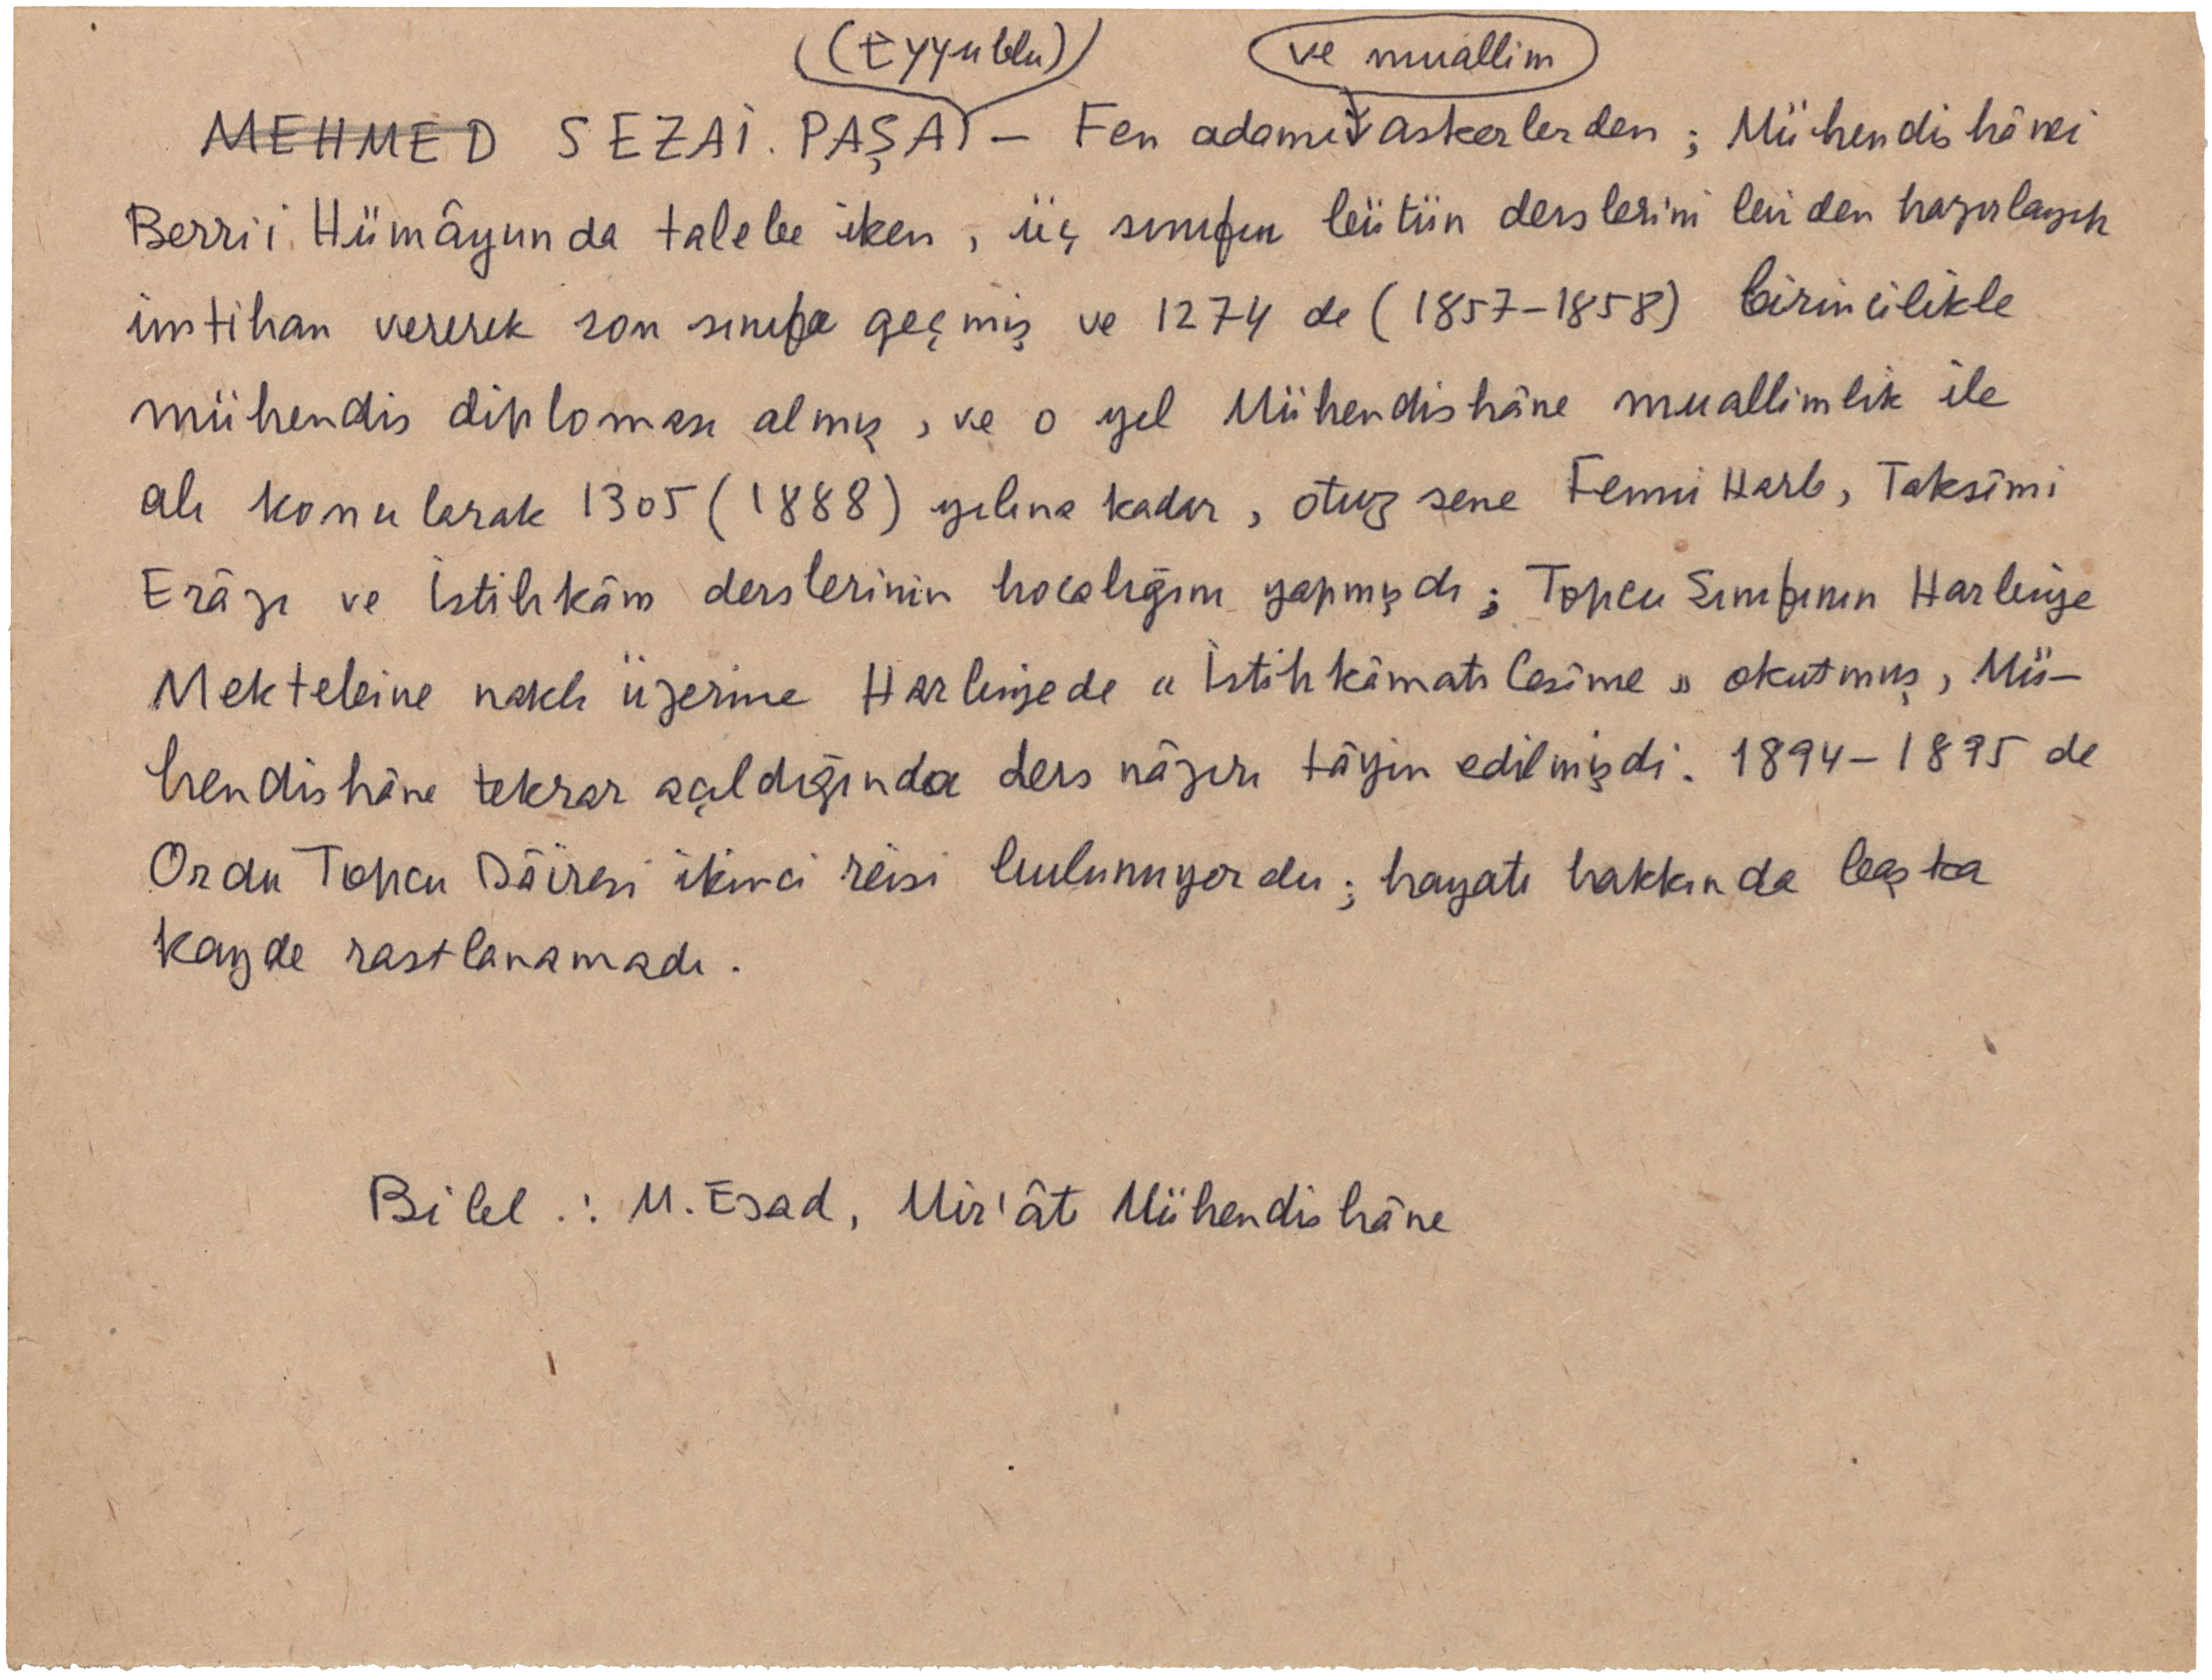 (Eyyublu) ve muallim
MEHMED SEZAİ. PAŞA — Fen adamı askerlerden ; Mühendishânei
Berrii Hümâyunda talebe iken , üç sınıfın bütün derslerini birden hazırlayıp
imtihan vererek son sınıfa geçmiş ve 1274 de ( 1857-1858) birincilikle
mühendis diploması almış , ve o yıl Mühendishâne muallimlik ile
alı konularak 1305 ( 1888) yılına kadar , otuz sene Fenni Harb, Taksîmi
Erâzı ve İstihkâm derslerinin hocalığını yapmışdı ; Topcu Sınıfının Harbiye
Mektebine naklı üzerine Harbiyede « İstihkâmatı Cesîme » okutmuş , Mü-
hendishâne tekrar açıldığında ders nâzırı tâyin edilmişdi. 1894-1895 de
Ordu Topcu Dâiresi ikinci reisi bulunuyordu ; hayatı hakkında başka
kayde rastlanamadı .
Bibl . : M. Esad, Mir'âtı Mühendishâne